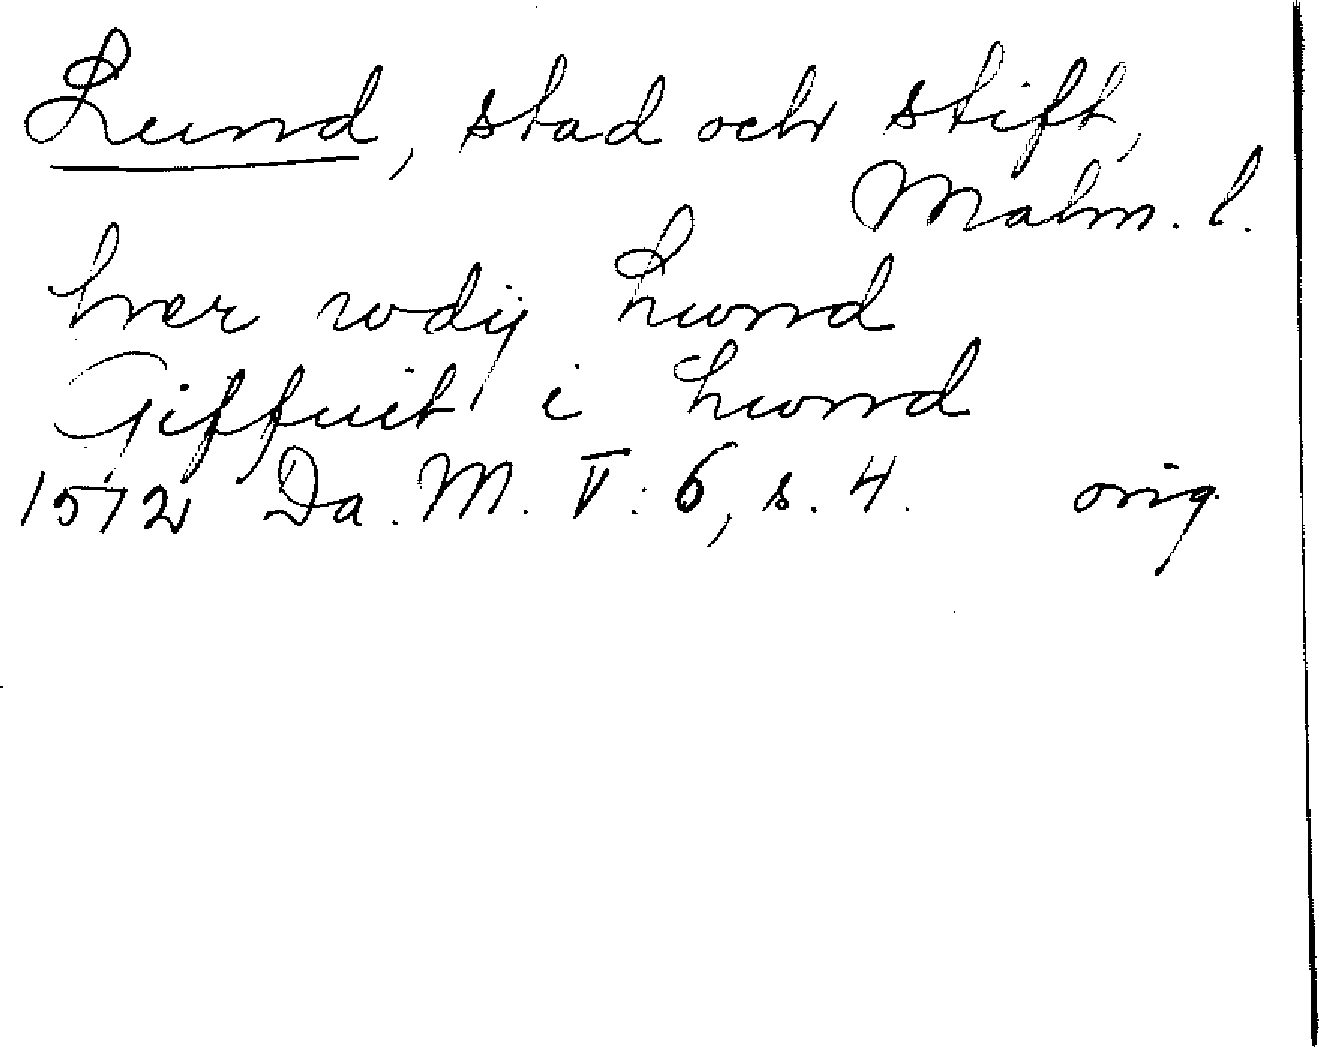 Lund, stad och stift,
Malm. l.
her wdij Lwnd
Giffuit i Lwnd
1572 Da. M. V: 6, s. 4. orig